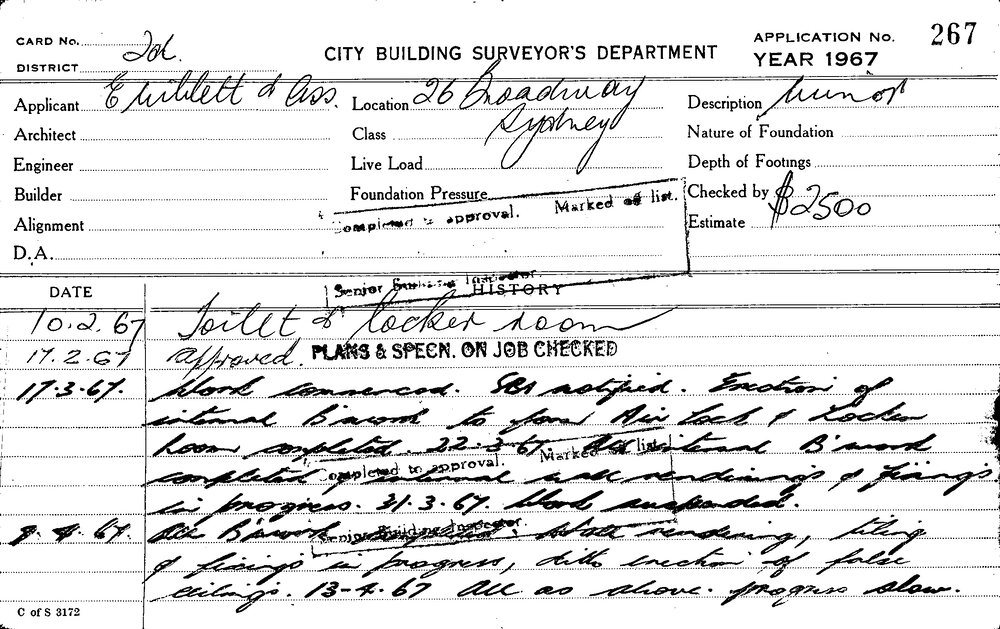 CARD No. 2d. CITY BUILDING SURVEYOR'S DEPARTMENT APPLICATION No. 267
DISTRICT YEAR 1967
Applicant & Ass. Location 26 Broadway Description Minor
Architect Class Sydney Nature of Foundation
Engineer Live Load Depth of Footings
Builder Foundation Pressure Checked by
Alignment Completed to approval. Marked off list. Estimate $2500
D.A.
Senior Building Inspector
DATE HISTORY
10.2.67 Toilet & locker room
17.2.67 approved. PLANS & SPECN. ON JOB CHECKED
17.3.67. Work commenced. notified. Erection of
internal B'work to form Air Lock & Locker
Room completed. 22.3.67. internal B'work
Marked off list
completed, internal wall renderings & fixings
Completed to approval.
in progress. 31.3.67. Work suspended.
4.67. All B'work rendering, tiling
Senior Building Inspector.
& fixings in progress, ditto erection of false
ceilings. 13-4.67 All as above. progress slow.
C of S 3172